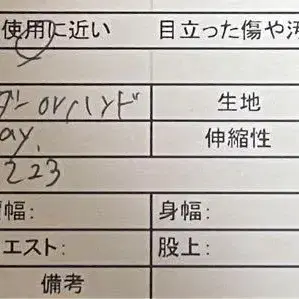 使用に近い 目立った傷や汚
ダーorハンド 生地
ay. 伸縮性
223
幅: 身幅:
エスト: 股上:
備考